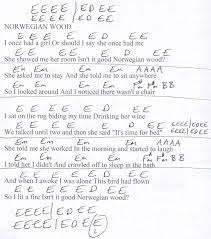 EEEE / ED EE
NORWEGIAN WOOD
E E E E D E E
I once had a girl Or should I say she once had me
E E E E D E E
She showed me her room Isn't it good Norwegian wood?
Em Em Em AAAA
She asked me to stay And she told me to sit anywhere
Em Em Em F# F# B B
So I looked around And I noticed there wasn't a chair
E E E E D E
I sat on the rug biding my time Drinking her wine
E E E E D E EEEE / EDEE
We talked until two and then she said "It's time for bed" EEEE / EDEE
Em Em Em AAAA
She told me she worked In the morning and started to laugh
Em Em Em F# F# B B
I told her I didn't And crawled off to sleep in the bath
E E E E D E E
And when I awoke I was alone This bird had flown
E E E E D E E
So I lit a fire Isn't it good Norwegian wood?
EEEE / ED EE
EEEE / ED EE E